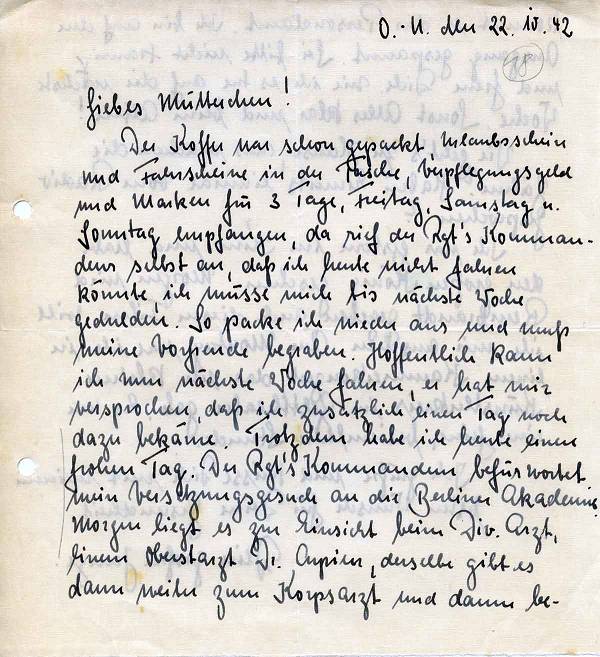 O.-U. den 22. IV. 42
88
Liebes Mutterchen!
Der Koffer war schon gepackt, Urlaubsschein
und Fahrscheine in der Tasche, Verpflegungsgeld
und Marken für 3 Tage, Freitag, Samstag u.
Sonntag empfangen, da rief der Rgt's Komman-
deur selbst an, daß ich heute nicht fahren
könnte, ich müsse mich bis nächste Woche
gedulden. So packe ich wieder aus und muß
meine Vorfreude begraben. Hoffentlich kann
ich nun nächste Woche fahren, er hat mir
versprochen, daß ich zusätzlich einen Tag noch
dazu bekäme. Trotzdem habe ich heute einen
frohen Tag. Der Rgt's Kommandeur befürwortet
mein Versetzungsgesuch an die Berliner Akademie.
Morgen liegt es zur Einsicht beim Div. Arzt,
einem Oberstarzt Dr. derselbe gibt es
dann weiter zum Korpsarzt und dann be-